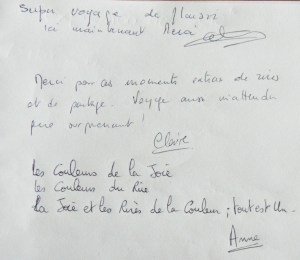 Super voyage de
ici maintenant Merci
Merci pour ces moments de rires
et de partage. Voyage aussi inattendu
que surprenant !
Claire
Les Couleurs de la Joie
Les Couleurs du Rire
La Joie et les Rires de la Couleur ; tout est Un.
Anne